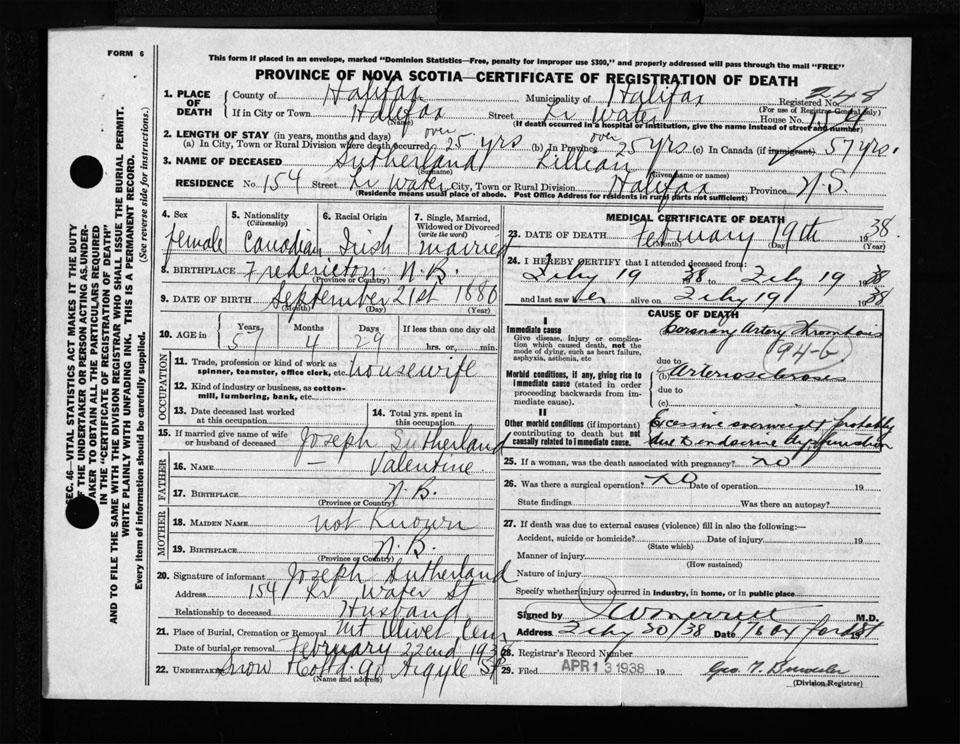 FORM 6
This form if placed in an envelope, marked "Dominion Statistics—Free, penalty for improper use $300," and properly addressed will pass through the mail "FREE"
PROVINCE OF NOVA SCOTIA—CERTIFICATE OF REGISTRATION OF DEATH
SEC. 46—VITAL STATISTICS ACT MAKES IT THE DUTY
OF THE UNDERTAKER OR PERSON ACTING AS UNDER-
TAKER TO OBTAIN ALL THE PARTICULARS REQUIRED
IN THE "CERTIFICATE OF REGISTRATION OF DEATH"
AND TO FILE THE SAME WITH THE DIVISION REGISTRAR WHO SHALL ISSUE THE BURIAL PERMIT.
WRITE PLAINLY WITH UNFADING INK. THIS IS A PERMANENT RECORD.
Every item of information should be carefully supplied. (See reverse side for instructions.)
1. PLACE OF DEATH County of Halifax Municipality of Halifax Registered No. 248
(For use of Registrar General only)
If in City or Town Halifax Street Lr Water House No. 154
(Name) (If death occurred in a hospital or institution, give the name instead of street and number)
2. LENGTH OF STAY (in years, months and days)
(a) In City, Town or Rural Division where death occurred over 25 yrs (b) In Province over 25 yrs. (c) In Canada (if immigrant) 57 yrs.
3. NAME OF DECEASED Sutherland Lillian
(Surname) (Given name or names)
RESIDENCE No. 154 Street Lr Water City, Town or Rural Division Halifax Province N.S.
(Residence means usual place of abode. Post Office Address for residents in rural parts not sufficient)
4. Sex female
5. Nationality (Citizenship) Canadian
6. Racial Origin Irish
7. Single, Married, Widowed or Divorced (write the word) married
8. BIRTHPLACE Fredericton N.B.
(Province or Country)
9. DATE OF BIRTH September 21st 1880
(Month) (Day) (Year)
10. AGE in Years 57 Months 4 Days 29 If less than one day old hrs. or min.
OCCUPATION
11. Trade, profession or kind of work as spinner, teamster, office clerk, etc. housewife
12. Kind of industry or business, as cotton-mill, lumbering, bank, etc.
13. Date deceased last worked at this occupation
14. Total yrs. spent in this occupation
15. If married give name of wife or husband of deceased Joseph Sutherland
FATHER
16. NAME — Valentine.
17. BIRTHPLACE N.B.
(Province or Country)
MOTHER
18. MAIDEN NAME not known
19. BIRTHPLACE N.B.
(Province or Country)
20. Signature of informant Joseph Sutherland
Address 154 Lr Water St
Relationship to deceased Husband
21. Place of Burial, Cremation or Removal Mt Olivet Cem
Date of burial or removal February 22nd 1938
22. UNDERTAKER Snow Co Ltd. 90 Argyle St
(Name and address)
MEDICAL CERTIFICATE OF DEATH
23. DATE OF DEATH February 19th 1938.
(Month) (Day) (Year)
24. I HEREBY CERTIFY that I attended deceased from:
Feby 19 1938 to Feby 19 1938
and last saw her alive on Feby 19 1938
CAUSE OF DEATH
I
Immediate cause
Give disease, injury or complication which caused death, not the mode of dying, such as heart failure, asphyxia, asthenia, etc
Coronary Artery Thrombosis
94-b
due to
Morbid conditions, if any, giving rise to immediate cause (stated in order proceeding backwards from immediate cause).
(b) Arteriosclerosis
due to
(c)
II
Other morbid conditions (if important) contributing to death but not causally related to immediate cause.
Excessive overweight probably
due to endocrine dysfunction
25. If a woman, was the death associated with pregnancy? no
26. Was there a surgical operation? no Date of operation 19
State findings Was there an autopsy?
27. If death was due to external causes (violence) fill in also the following:—
Accident, suicide or homicide? Date of injury 19
(State which)
Manner of injury
(How sustained)
Nature of injury
Specify whether injury occurred in Industry, in home, or in public place
Signed by Merrett M.D.
Address Feby 20/38 Date 176 Oxford St
28. Registrar's Record Number
29. Filed APR 13 1938 19 Geo. T.
(Division Registrar)